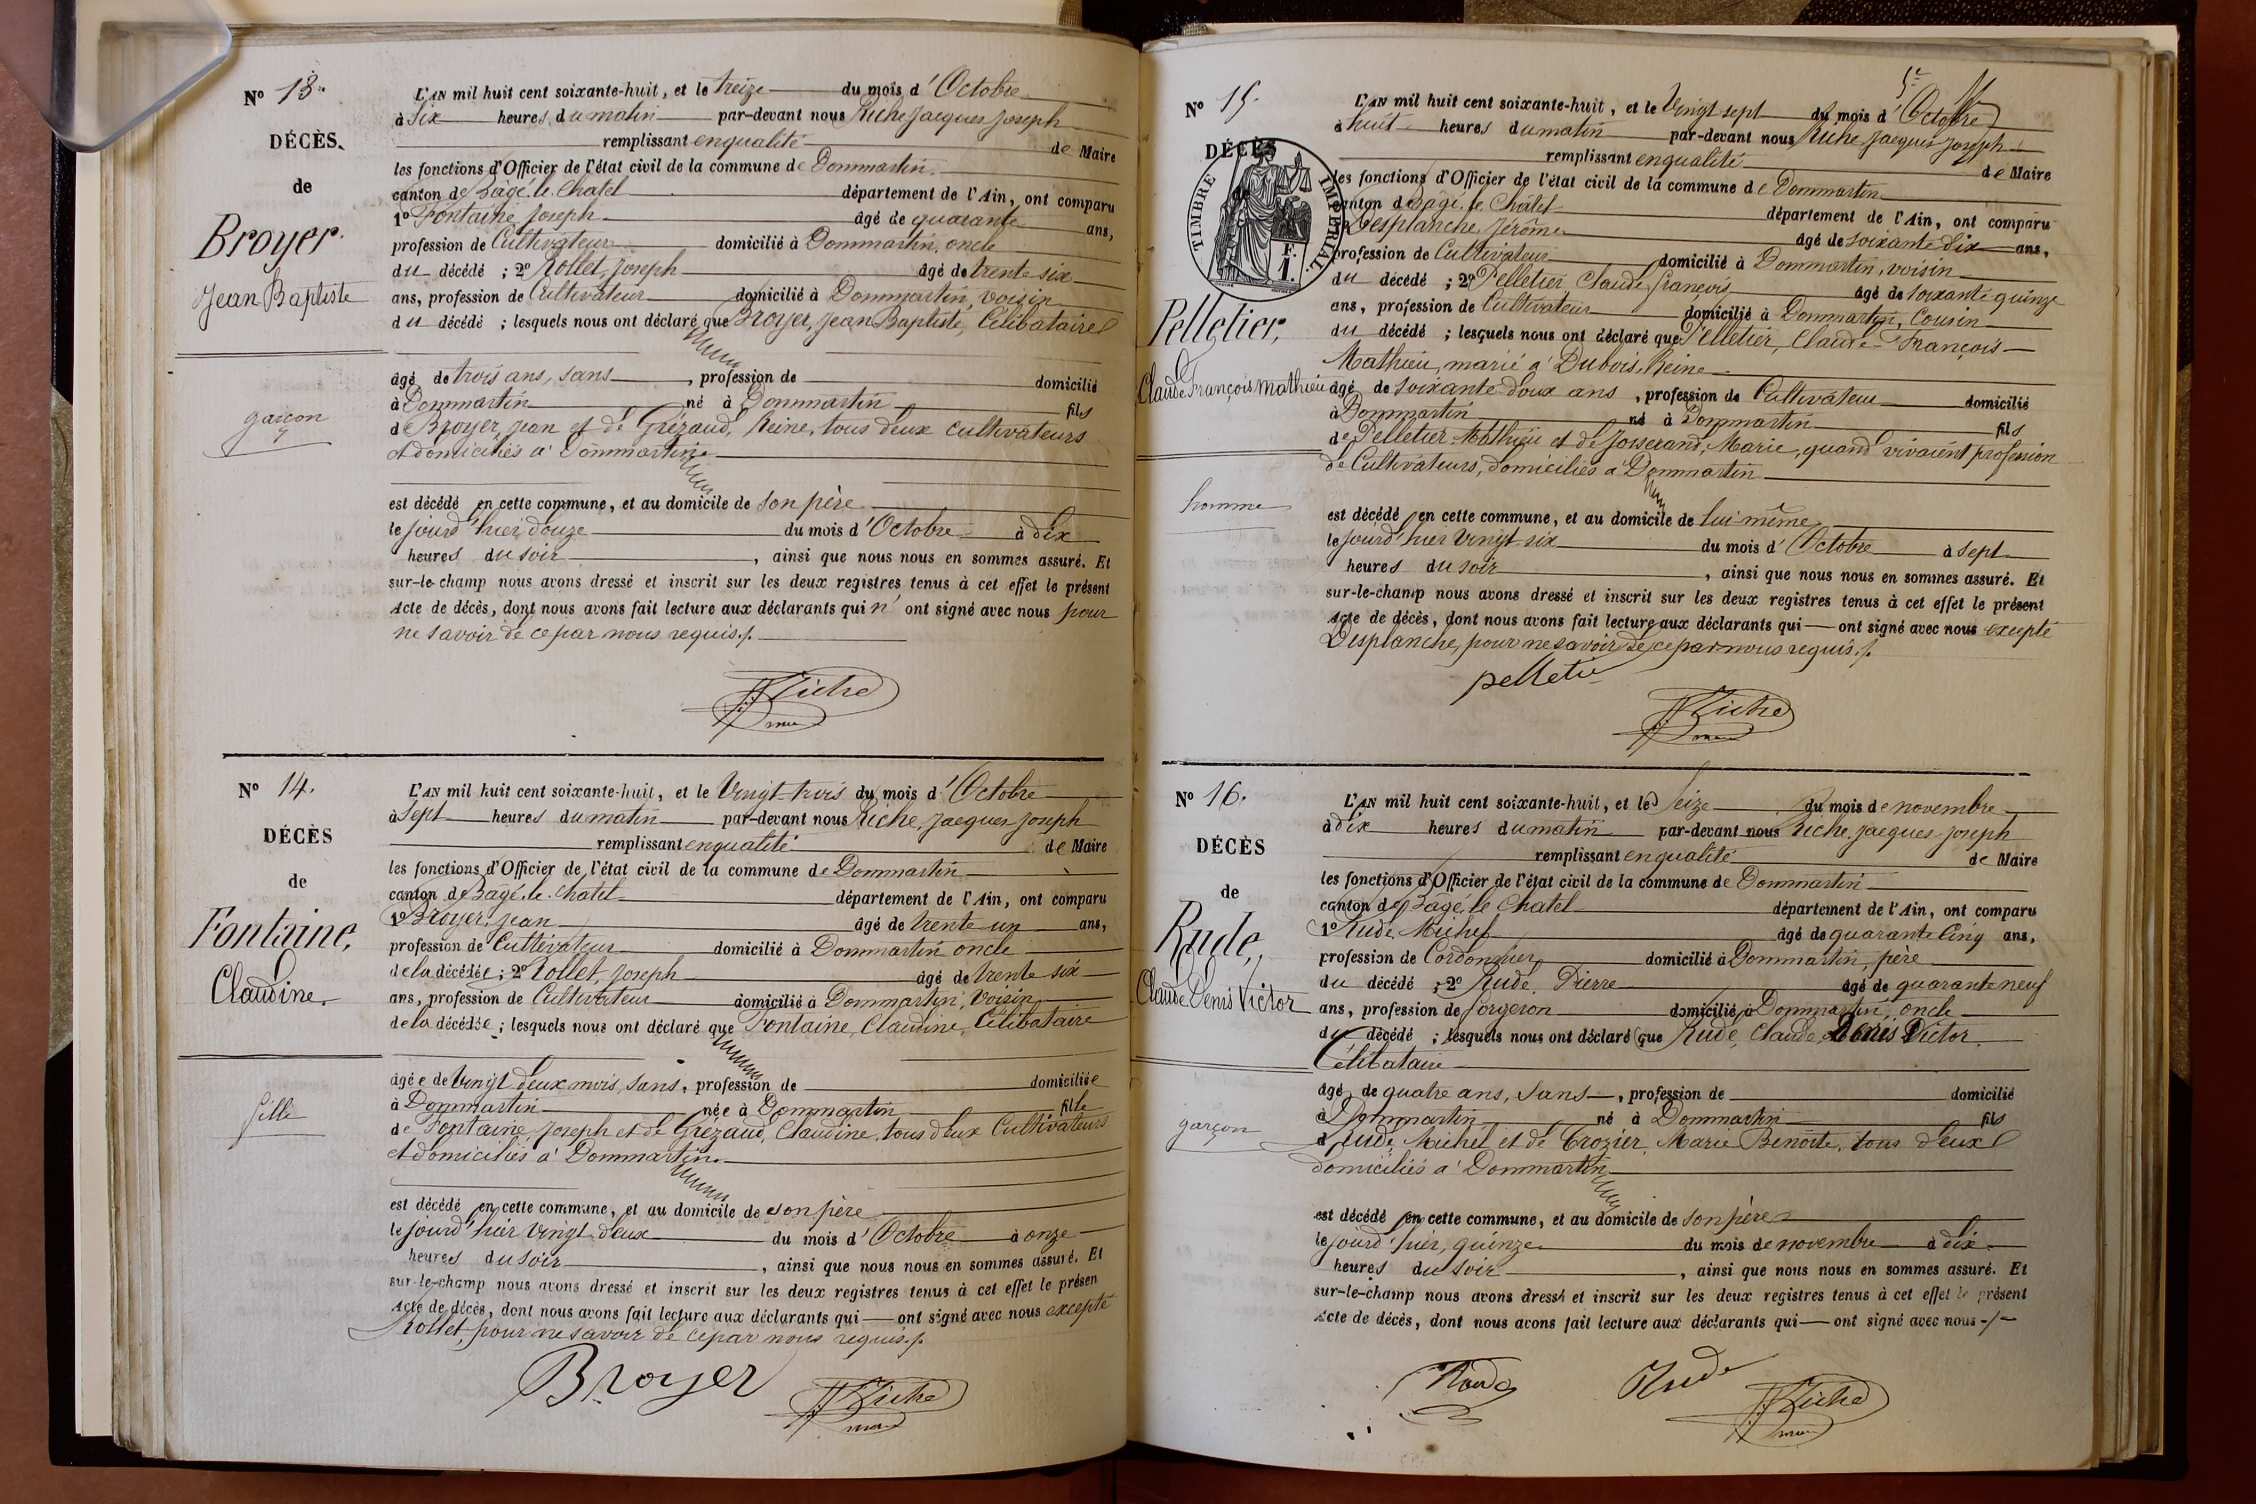 N° 13.
DÉCÈS.
de
Broyer
Jean Baptiste
garçon
L'AN mil huit cent soixante-huit, et le treize du mois d'Octobre
à Six heures du matin par-devant nous Riche Jacques Joseph
remplissant en qualité de Maire
les fonctions d'Officier de l'état civil de la commune de Dommartin
canton de Bâgé-le-Chatel département de l'Ain, ont comparu
1° Fontaine Joseph âgé de quarante ans,
profession de Cultivateur domicilié à Dommartin, oncle
du décédé ; 2° Rollet, Joseph âgé de trente six
ans, profession de Cultivateur domicilié à Dommartin, voisin
du décédé ; lesquels nous ont déclaré que Broyer, Jean Baptiste, Célibataire
âgé de trois ans, sans, profession de domicilié
à Dommartin né à Dommartin fils
de Broyer, Jean et de Grézaud, Reine, tous deux cultivateurs
et domiciliés à Dommartin.
est décédé en cette commune, et au domicile de son père
le jourd'hier, douze du mois d'Octobre à dix
heures du soir, ainsi que nous nous en sommes assuré. Et
sur-le-champ nous avons dressé et inscrit sur les deux registres tenus à cet effet le présent
Acte de décès, dont nous avons fait lecture aux déclarants qui n'ont signé avec nous pour
ne savoir de ce par nous requis./.
Riche
maire
N° 14.
DÉCÈS
de
Fontaine,
Claudine.
fille
L'AN mil huit cent soixante-huit, et le Vingt-trois du mois d'Octobre
à Sept heures du matin par-devant nous Riche, Jacques Joseph
remplissant en qualité de Maire
les fonctions d'Officier de l'état civil de la commune de Dommartin
canton de Bâgé-le-Chatel département de l'Ain, ont comparu
1° Broyer, Jean âgé de trente un ans,
profession de Cultivateur domicilié à Dommartin oncle
de la décédée ; 2° Rollet, Joseph âgé de trente six
ans, profession de Cultivateur domicilié à Dommartin, Voisin
de la décédée ; lesquels nous ont déclaré que Fontaine, Claudine, Célibataire
âgée de Vingt deux mois, sans, profession de domiciliée
à Dommartin née à Dommartin fille
de Fontaine, Joseph et de Grézaud, Claudine, tous deux Cultivateurs
et domiciliés à Dommartin.
est décédé en cette commune, et au domicile de son père
le jourd'hier Vingt-deux du mois d'Octobre à onze
heures du soir, ainsi que nous nous en sommes assuré. Et
sur-le-champ nous avons dressé et inscrit sur les deux registres tenus à cet effet le présen
Acte de décès, dont nous avons fait lecture aux déclarants qui ont signé avec nous excepté
Rollet, pour ne savoir de ce par nous requis./.
Broyer
Riche
maire
N° 15.
DÉCÈS
TIMBRE IMPÉRIAL
F.
1.
Pelletier,
Claude François Mathieu
homme
L'AN mil huit cent soixante-huit, et le Vingt sept du mois d'Octobre
à huit heures du matin par-devant nous Riche Jacques Joseph
remplissant en qualité de Maire
les fonctions d'Officier de l'état civil de la commune de Dommartin
canton de Bagé-le-Châtel département de l'Ain, ont comparu
Desplanche, Jérôme âgé de soixante dix ans,
profession de Cultivateur domicilié à Dommartin, voisin
du décédé ; 2° Pelletier Claude François âgé de soixante quinze
ans, profession de Cultivateur domicilié à Dommartin, Cousin
du décédé ; lesquels nous ont déclaré que Pelletier, Claude-François
Mathieu, marié à Dubois, Reine
âgé de soixante doux ans, profession de Cultivateur domicilié
à Dommartin né à Dommartin fils
de Pelletier Mathieu et de Josserand, Marie, quand vivaient profession
de Cultivateurs, domiciliés à Dommartin
est décédé en cette commune, et au domicile de lui même
le jourd'hier Vingt-six du mois d'Octobre à sept
heures du soir, ainsi que nous nous en sommes assuré. Et
sur-le-champ nous avons dressé et inscrit sur les deux registres tenus à cet effet le présent
Acte de décès, dont nous avons fait lecture aux déclarants qui ont signé avec nous excepté
Desplanche, pour ne savoir de ce par nous requis./.
pelletier
Riche
maire
N° 16.
DÉCÈS
de
Rude,
Claude Denis Victor
garçon
L'AN mil huit cent soixante-huit, et le Seize du mois de novembre
à dix heures du matin par-devant nous Riche, Jacques-Joseph
remplissant en qualité de Maire
les fonctions d'Officier de l'état civil de la commune de Dommartin
canton de Bagé-le-Chatel département de l'Ain, ont comparu
1° Rude, Michel âgé de quarante Cinq ans,
profession de Cordonnier domicilié à Dommartin, père
du décédé ; 2° Rude, Pierre âgé de quarante neuf
ans, profession de forgeron domicilié à Dommartin, oncle
du décédé ; lesquels nous ont déclaré que Rude, Claude Denis Victor,
Célibataire
âgé de quatre ans, sans, profession de domicilié
à Dommartin né à Dommartin fils
d Rude, Michel et de Crozier, Marie Benoîte, tous deux
domiciliés à Dommartin
est décédé en cette commune, et au domicile de son père
le jourd'hier, quinze du mois de novembre à dix
heures du soir, ainsi que nous nous en sommes assuré. Et
sur-le-champ nous avons dressé et inscrit sur les deux registres tenus à cet effet le présent
Acte de décès, dont nous avons fait lecture aux déclarants qui ont signé avec nous -/-
Rude
Rude
Riche
maire